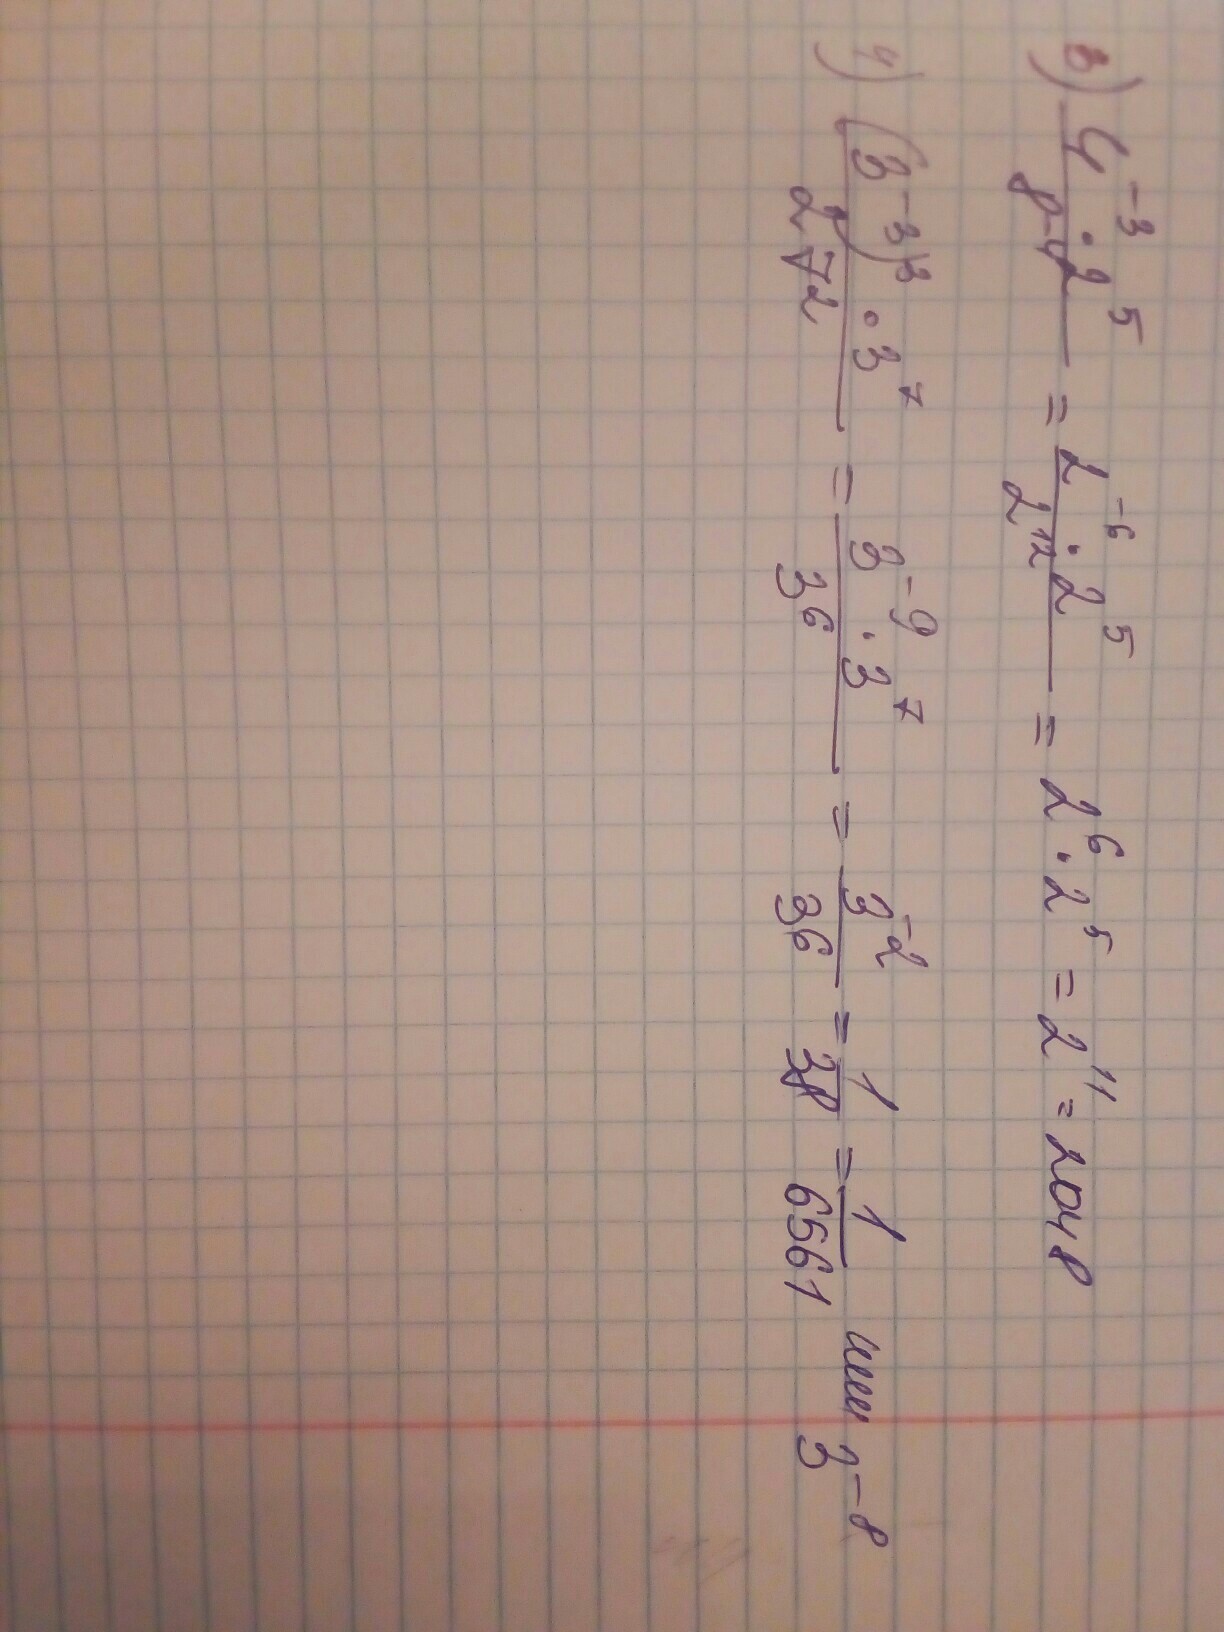 3) 4^-3 · 2^5 / 8^-4 = 2^-6 · 2^5 / 2^12 = 2^6 · 2^5 = 2^11 = 2048
4) (3^-3)^3 · 3^7 / 27^2 = 3^-9 · 3^7 / 3^6 = 3^-2 / 3^6 = 1 / 3^8 = 1 / 6561 или 3^-8